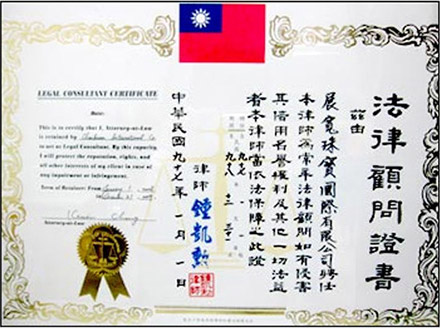 法律顧問證書
茲由
展寬珠寶國際有限公司聘任
本律師為常年法律顧問如有侵害
其信用名譽權利及其他一切法益
者本律師當依法保障之此證
律師 鍾凱勳
中華民國九十七年一月一日
LEGAL CONSULTANT CERTIFICATE
Date:
This is to certify that I, Attorney-at-Law
is retained by
International Co
to act as Legal Consultant. By this capacity,
I will protect the reputation, rights, and
all other interests of my client in case of
any impairment or infringement.
Term of Retainer: From January 1